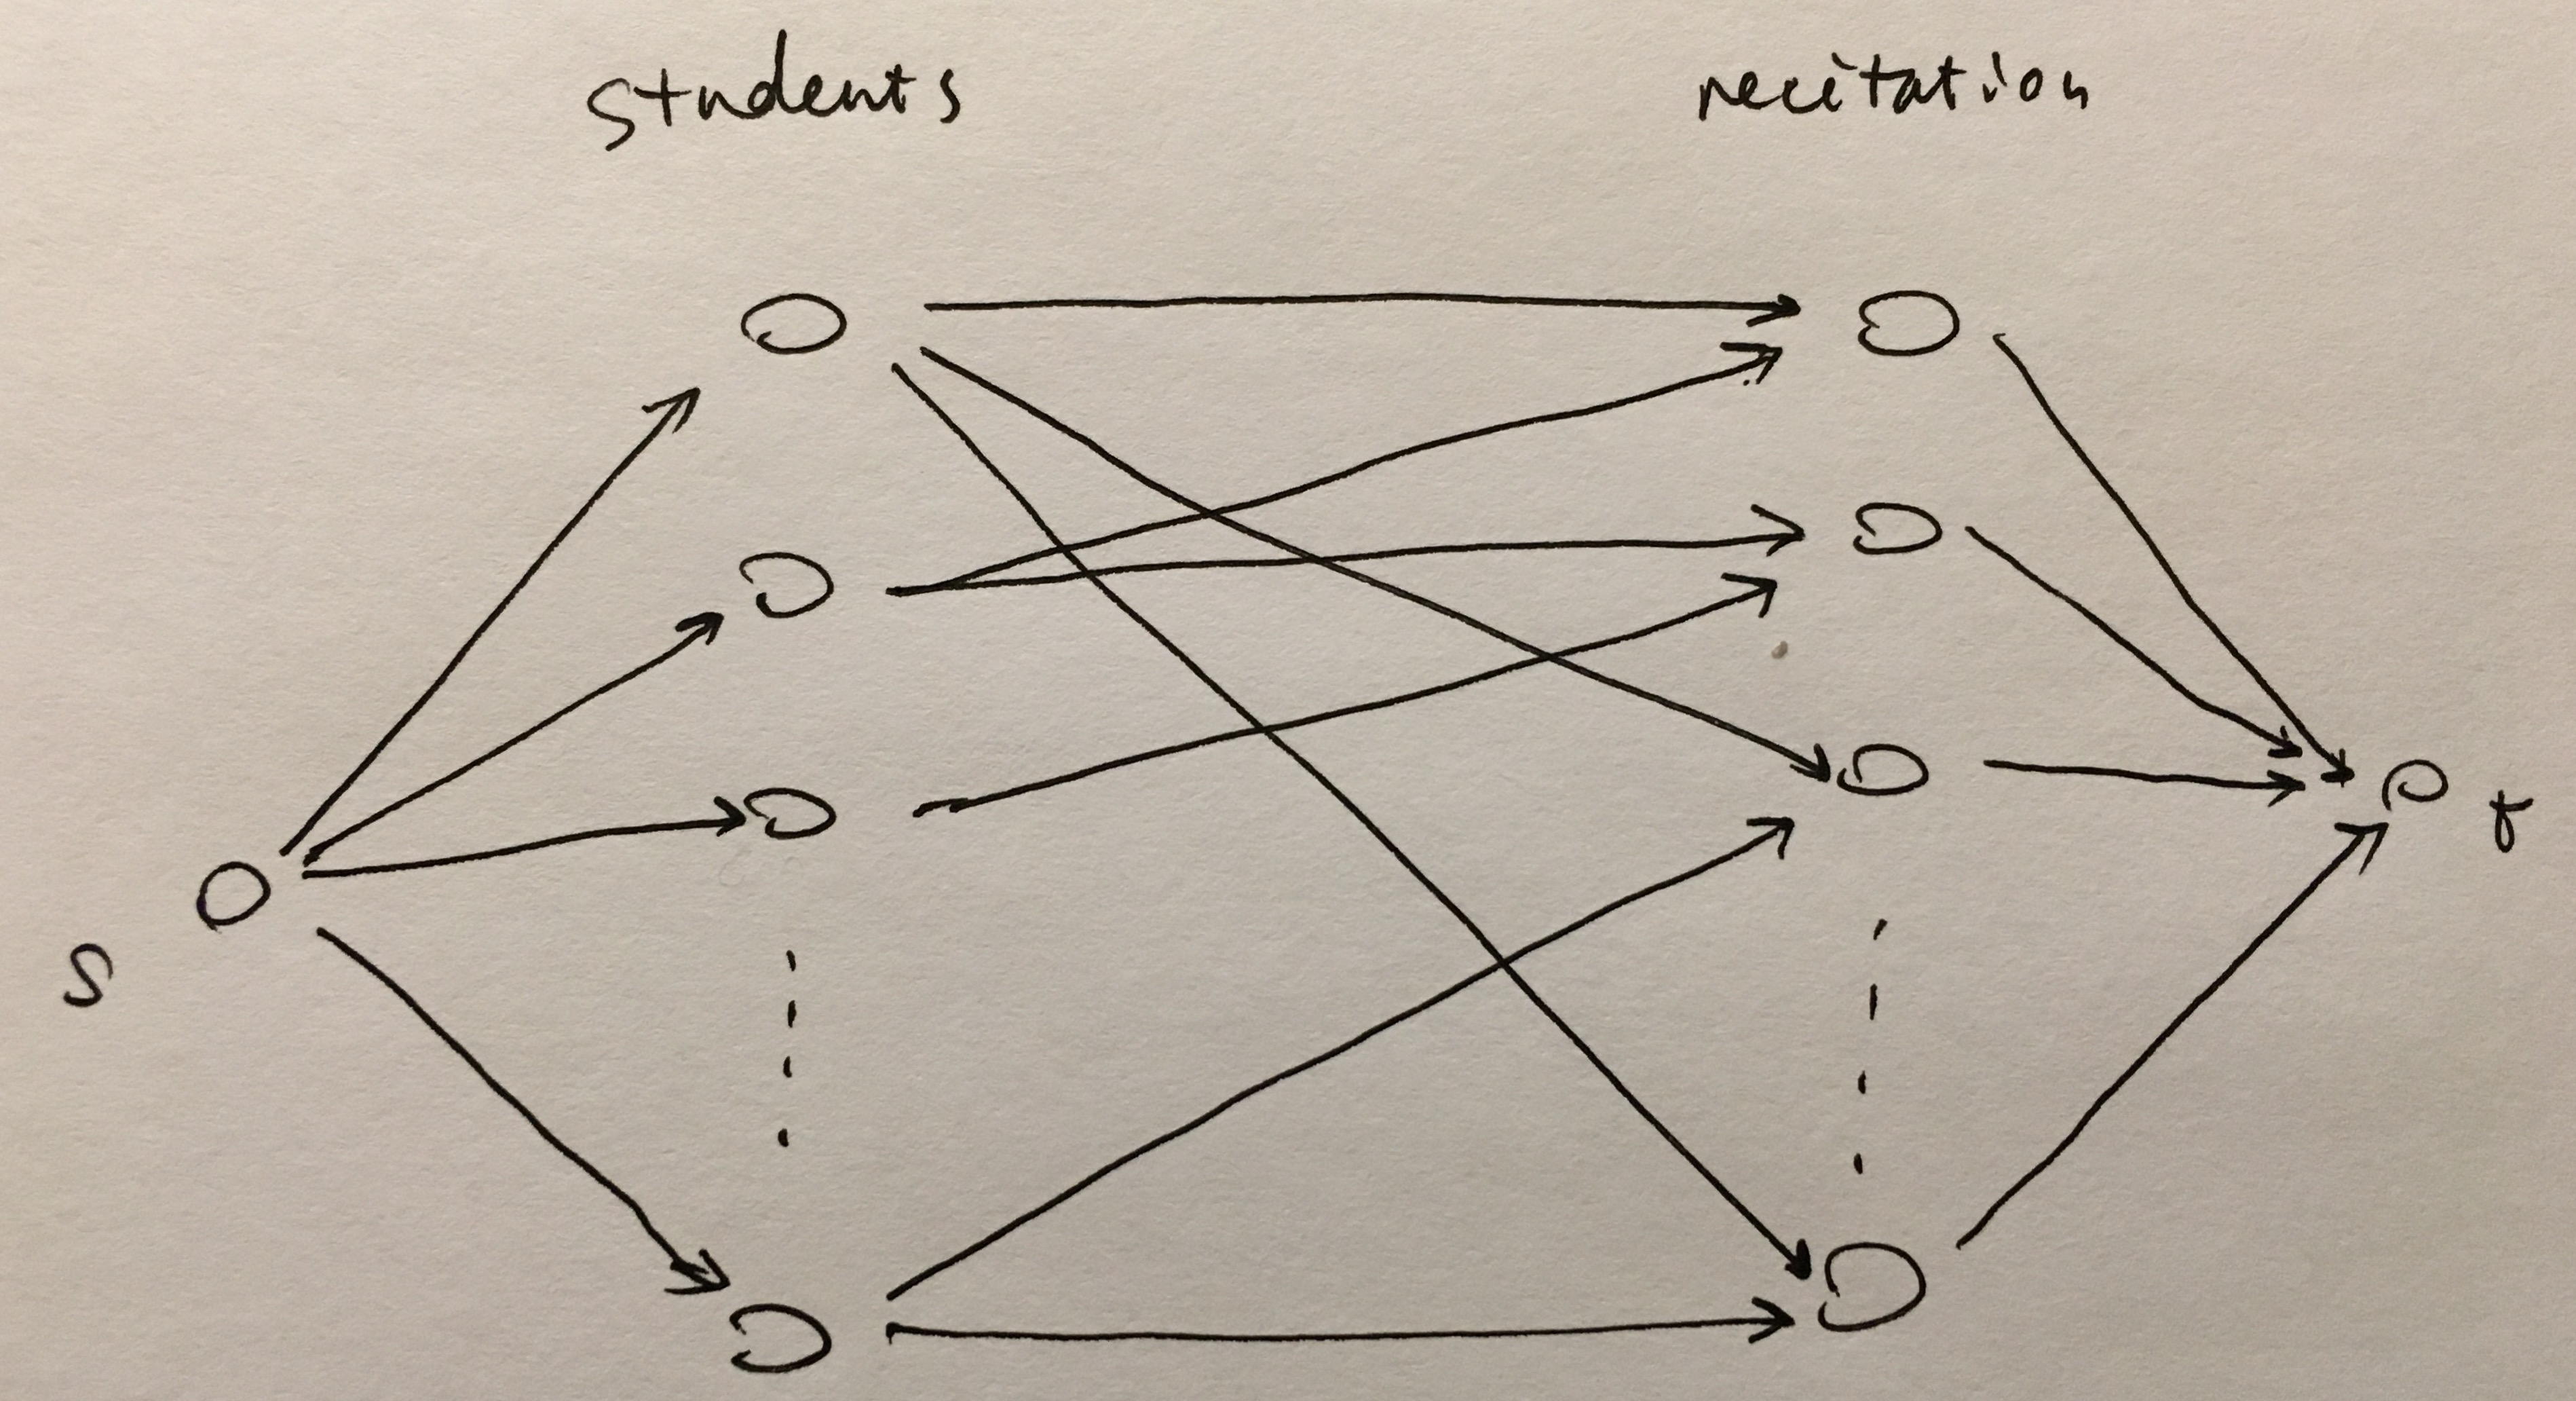 students
recitation
s
t